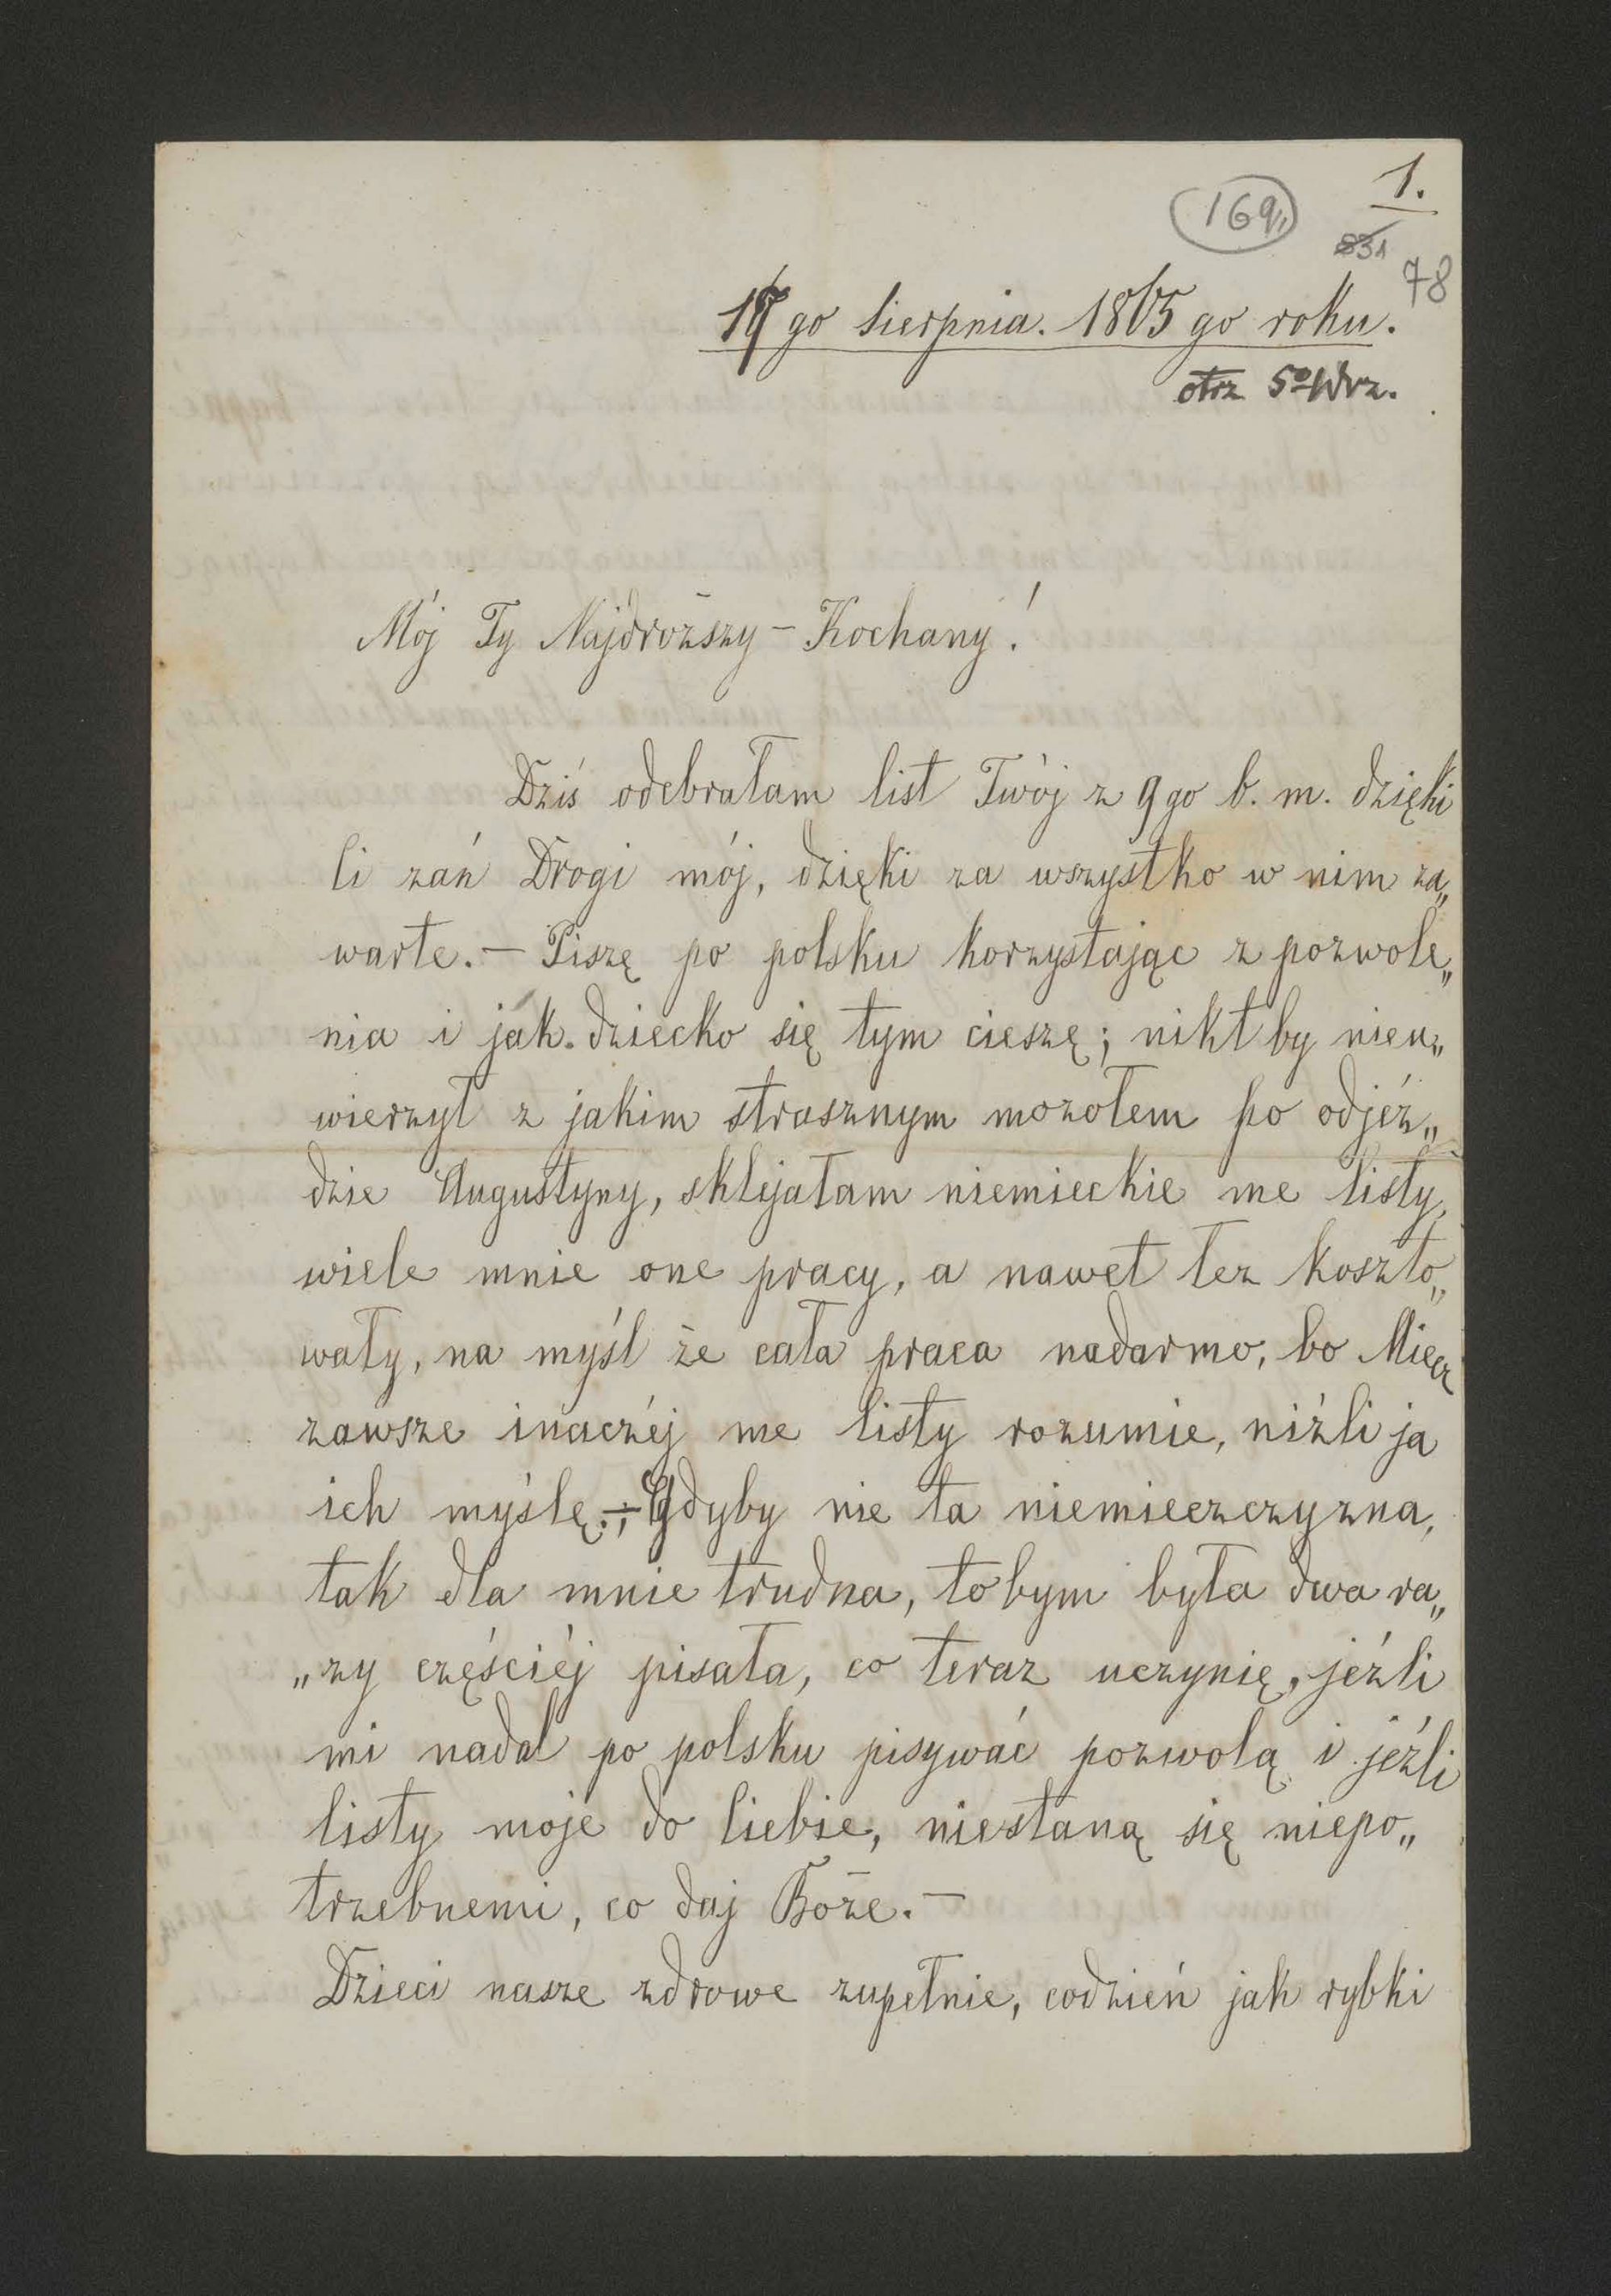 1.
169
831
78
go Sierpnia. 1865 go roku.
otrz 5º Wrz.
Mój Ty Najdroższy – Kochany!
Dziś odebrałam list Twój z 9 go b. m. dzięki
Ci zań Drogi mój, dzięki za wszystko w nim za„
warte. – Piszę po polsku korzystając z pozwole„
nia i jak dziecko się tym cieszę; nikt by nieu„
wierzył z jakim strasznym mozołem po odjéz„
dzie Augustyny, sklejałam niemieckie me listy,
wiele mnie one pracy, a nawet łez koszto„
wały, na myśl że cała praca nadarmo, bo Miecz
zawsze inaczéj me listy rozumie, niźli ja
ich myślę. – Gdyby nie ta niemieczczyzna,
tak dla mnie trudna, tobym była dwa ra„
„zy częściéj pisała, co teraz uczynię, jéźli
mi nadal po polsku pisywać pozwolą i jéźli
listy moje do Ciebie, niestaną się niepo„
trzebnemi, co daj Boże. –
Dzieci nasze zdrowe zupełnie, codzień jak rybki